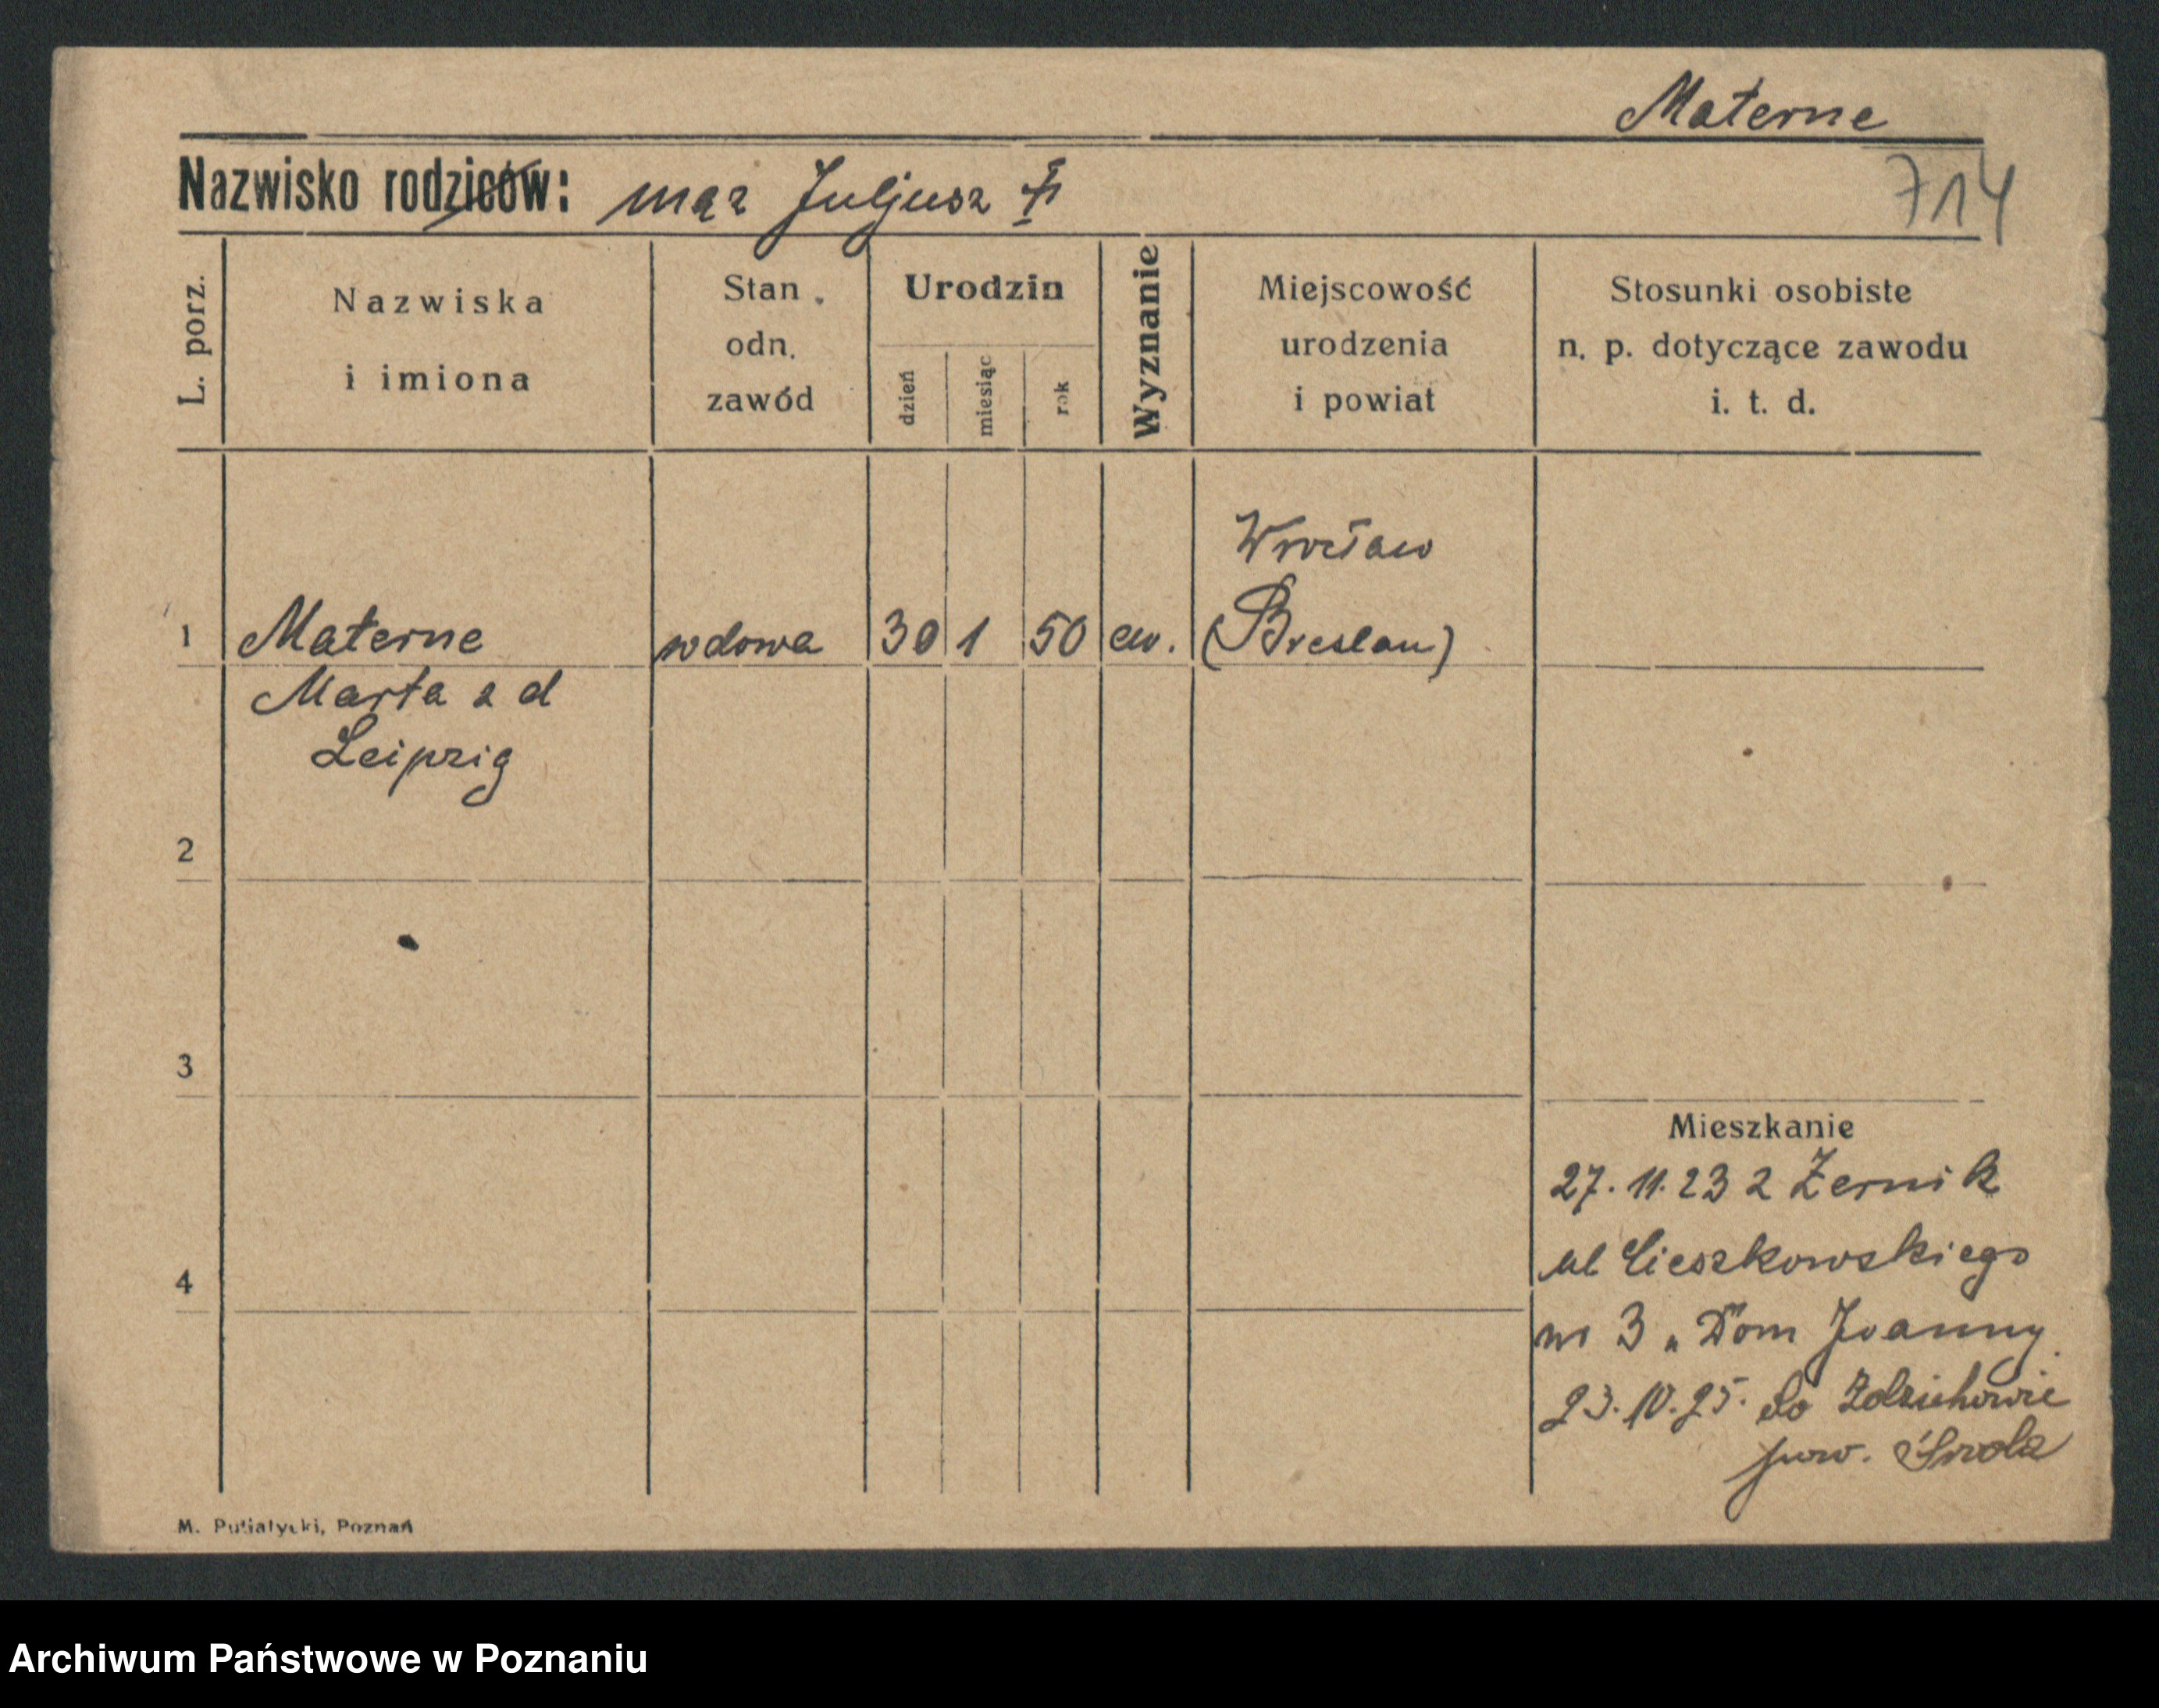 Materne
Nazwisko rodziców: mąż Juljusz
714
L. porz.
Nazwiska
i imiona
Stan
odn.
zawód
Urodzin
dzień
miesiąc
rok
Wyznanie
Miejscowość
urodzenia
i powiat
Stosunki osobiste
n. p. dotyczące zawodu
i. t. d.
Wrocław
1 Materne wdowa 30 1 50 ew. (Breslau)
Marta z d
Leipzig
2
3
4
Mieszkanie
27. 11. 23 z Żernik
ul Cieszkowskiego
nr 3 „Dom Joanny
23. 10. 25. do
pow. Środa
M. Putiatycki, Poznań
Archiwum Państwowe w Poznaniu